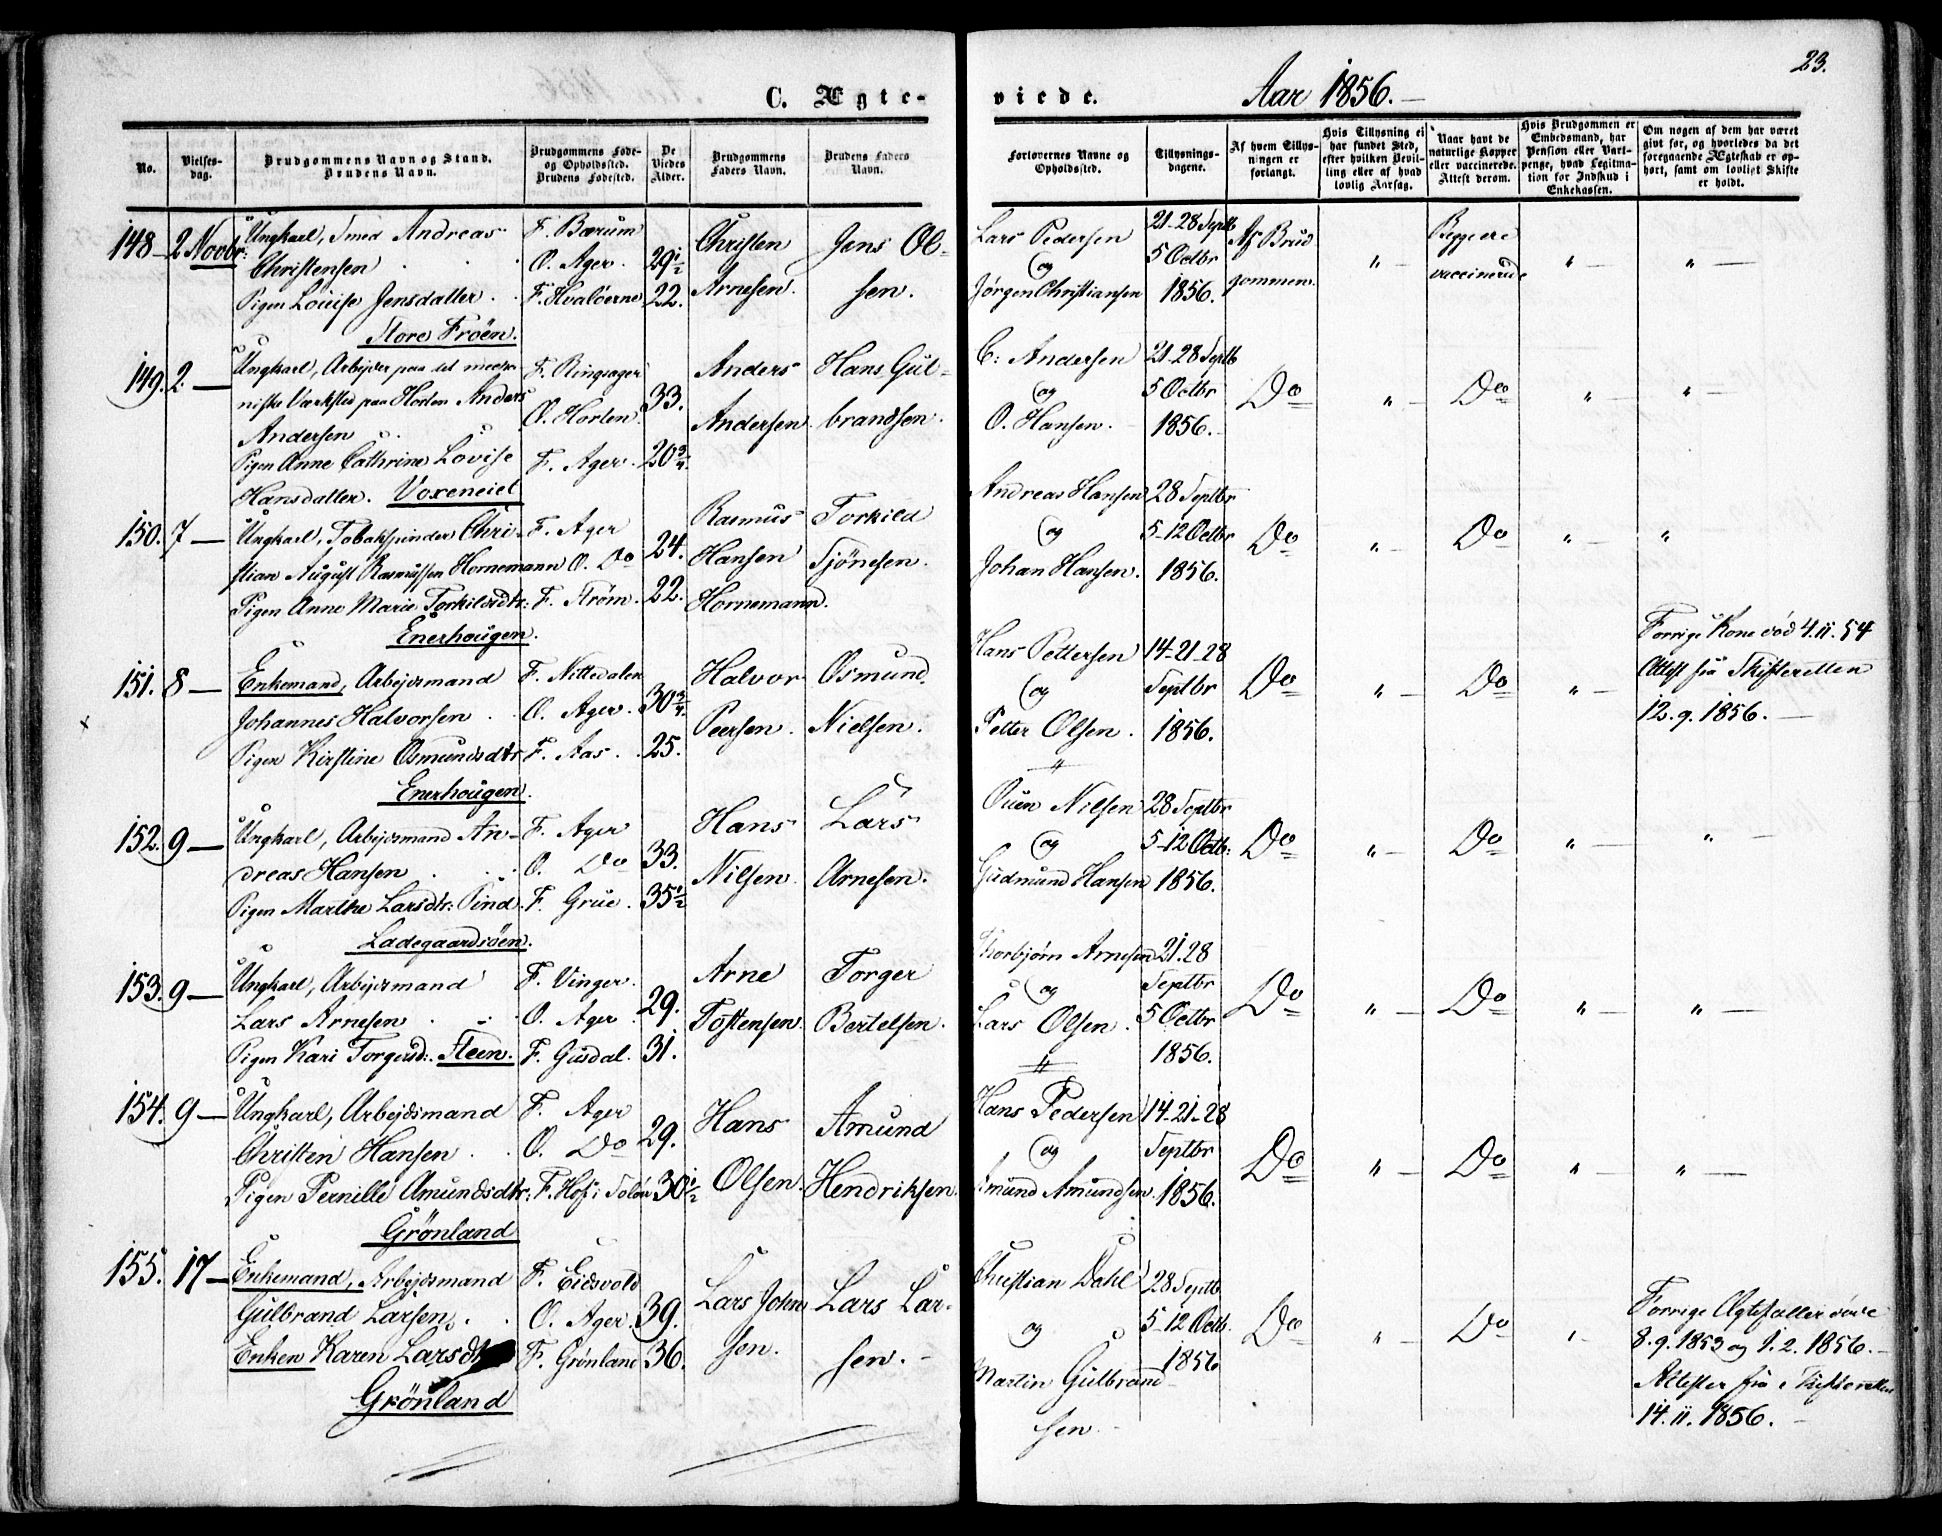 23.
C. Ægte-
viede. Aar 1856.
No.
Vielses-
dag.
Brudgommens Navn og Stand.
Brudens Navn.
Brudgommens Føde-
og Opholdssted.
Brudens Fødested.
De
Viedes
Alder.
Brudgommens
Faders Navn.
Brudens Faders
Navn.
Forlovernes Navne og
Opholdssted.
Tillysnings-
dagene.
Af hvem Tillys-
ningen er
forlangt.
Hvis Tillysning ei
har fundet Sted,
efter hvilken Bevil-
ling eller af hvad
lovlig Aarsag.
Naar havt de
naturlige Kopper
eller vaccinerede.
Attest derom.
Hvis Brudgommen er
Embedsmand, har
Pension eller Vart-
penge, hvad Legitma-
tion for Indskud i
Enkekassen.
Om nogen af dem har været
givt før, og hvorledes da det
foregaaende Ægteskab er op-
hørt, samt om lovligt Skifte
er holdt.
148 2 Novbr:
Ungkarl, Smed Andreas
Christensen
Pigen Louise Jensdatter.
Store Fröen.
F. Bærum
O. Ager.
F. Hvaløerne
29 1/2
22.
Christen
Arnesen.
Jens Ol-
sen.
Lars Pedersen
og
Jørgen Christiansen
21-28 Septb
5 Octbr
1856.
Af Brud
gommen.
" —
Begge ere
vaccinerede
" —
" —
149. 2. —
Ungkarl, Arbejder paa det mecha-
niske Værksted paa Horten Anders
Andersen
Pigen Anne Cathrine Lovise
Hansdatter. Voxeneiet
F. Ringsager
O. Horten.
F. Ager.
33.
20 3/4.
Anders
Andersen
Hans Gul-
brandsen.
C: Andersen
og
O. Hansen.
21-28 Septb
5 Octbr
1856.
Do
" —
Do
" —
" —
150. 7 —
Ungkarl, Tobakspinder Chri-
stian August Rasmussen Hornemann
Pigen Anne Marie Torkildsdtr:
Enerhougen.
F. Ager
O. Do
F. Strøm.
24.
22.
Rasmus
Hansen
Hornemann.
Torkild
Tjönesen.
Andreas Hansen
og
Johan Hansen.
28 Septbr
5-12 Octbr
1856.
Do
" —
Do
" —
"
151. 8 —
Enkemand, Arbejdsmand
Johannes Halvorsen
Pigen Kirstine Osmundsdtr
Enerhougen.
F. Nittedalen
O. Ager.
F. Aas.
30 3/4.
25.
Halvor
Peersen.
Osmund
Nielsen.
Hans Pettersen
og
Petter Olsen.
14-21-28
Septbr
1856.
Do
" —
Do
" —
Forrige Kone död 4.11.54
Attest fra Skifteretten
12.9.1856. —
152. 9 —
Ungkarl, Arbejdsmand An-
dreas Hansen
Pigen Marthe Larsdtr: Pind.
Ladegaardsöen.
F. Ager
O. Do
F. Grue.
33.
35 1/2
Hans
Nilsen.
Lars
Arnesen.
Ouen Nilsen
og
Gudmund Hansen
28 Septbr
5-12 Octb:
1856.
Do
" —
Do
" —
" —
153. 9 —
Ungkarl, Arbejdsmand
Lars Arnesen
Pigen Kari Torgersd: Steen.
F. Vinger.
O. Ager
F. Gusdal.
29.
31.
Arne
Tostensen.
Torger
Bertelsen.
Thorbjørn Arnesen
og
Lars Olsen.
21.28
Septbr
5 Octbr
1856.
Do
" —
Do
" —
" —
154. 9 —
Ungkarl, Arbejdsmand
Christen Hansen
Pigen Pernille Amundsdtr:
Grönland
F. Ager
O. Do
F. Hof i Solör
29.
30 1/2
Hans
Olsen.
Amund
Hendriksen.
Hans Pedersen
og
Amund Amundsen.
14-21-28
Septbr
1856.
Do
" —
Do
" —
" —
155. 17 —
Enkemand, Arbejdsmand
Gulbrand Larsen.
Enken Karen Larsdtr
Grönland
F. Eidsvold
O. Ager.
F. Grønland
39.
36.
Lars Johan
sen.
Lars Lar-
sen. —
Christian Dahl
og
Martin Gulbrand-
sen.
28 Septb
5-12 Octb.
1856
Do
" —
Do
" —
Forrige Ægtefæller döde
8.9.1853 og 1.2.1856.
Attester fra Skifteretten
14.11.1856. —